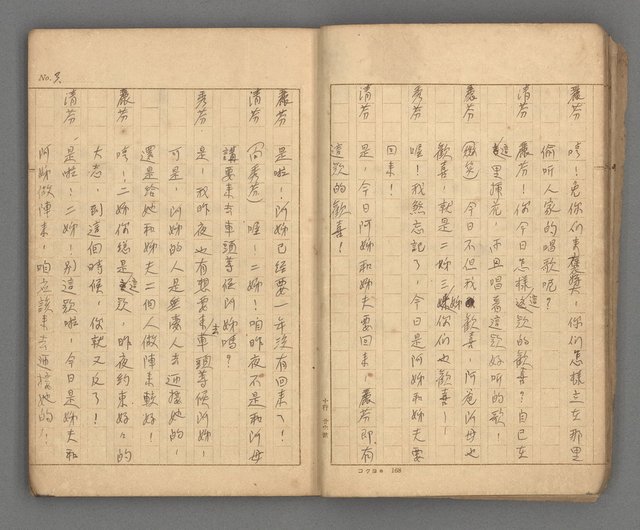 麗芬　唔！免你們來費笑，你們怎樣立在那里
偷听人家的唱歌呢？
清芬　麗芬！你今日怎樣這款的歡喜？自己在
這里揷花，亦且唱着這款好听的歌！
麗芬　(微笑)今日不但我歡喜，阿爸阿母也
歡喜，就是二姊三姊你們也歡喜！
秀芬　喔！我煞忘記了，今日是阿姊和姊夫要
回來！
清芬　是，今日阿姊和姊夫要回來，麗芬即有
這款的歡喜！
十行 廿四詰
コクヨ 168
No. 3.
麗芬　是啦！阿姊已經要一年沒有回來了！
清芬　(向秀芬)喔！二姊！咱昨夜不是和阿母
講要來去車頭等候阿姊嗎？
秀芬　是，我昨夜也有想要來去車頭等候阿姊！
可是，阿姊的人是無愛人去迎接她的，
還是給她和姊夫二個人做陣來較好！
麗芬　唔！二姊你總是這款，昨夜約束好好的
大志，到這個時候，你就又反了！
清芬　是啦！二姊！別這款啦！今日是姊夫和
阿姊做陣來，咱应該來去迎接她的！